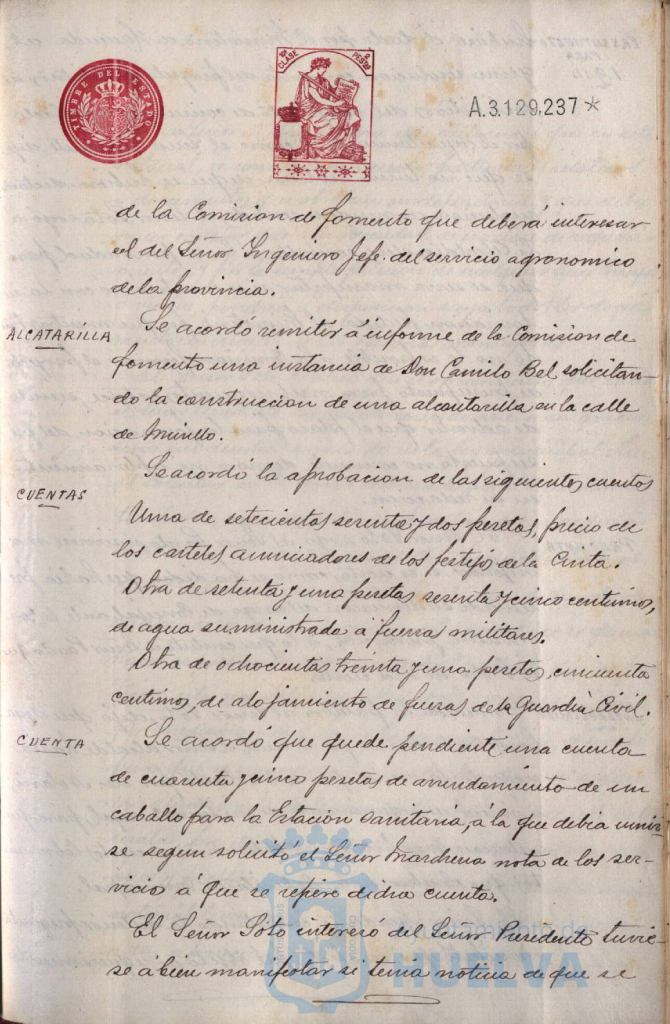 TIMBRE DEL ESTADO
10ª CLASE
PESETAS
A.3.129,237*
de la Comision de fomento que deberá interesar
el del Señor Ingeniero Jefe del servicio agronomico
de la provincia.
ALCATARILLA
Se acordó remitir á informe de la Comision de
fomento una instancia de Don Camilo Bel solicitan-
do la construccion de una alcantarilla en la calle
de Murillo.
Se acordó la aprobacion de las siguientes cuentas
CUENTAS
Una de setecientas sesenta y dos pesetas, precio de
los carteles anunciadores de los festejos de la Cinta.
Otra de setenta y una pesetas sesenta y cinco centimos,
de agua suministrada á fuerzas militares.
Otra de ochocientas treinta y una pesetas, cincuenta
centimos, de alojamiento de fuerzas de la Guardia Civil.
CUENTA
Se acordó que quede pendiente una cuenta
de cuarenta y cinco pesetas de arrendamiento de un
caballo para la Estacion Sanitaria, á la que debia unir-
se segun solicitó el Señor Marchena nota de los ser-
vicio á que se refiere dicha cuenta.
El Señor Soto interesó del Señor Presidente tuvie-
se á bien manifestar si tenia noticia de que se
Ayuntamiento de
HUELVA